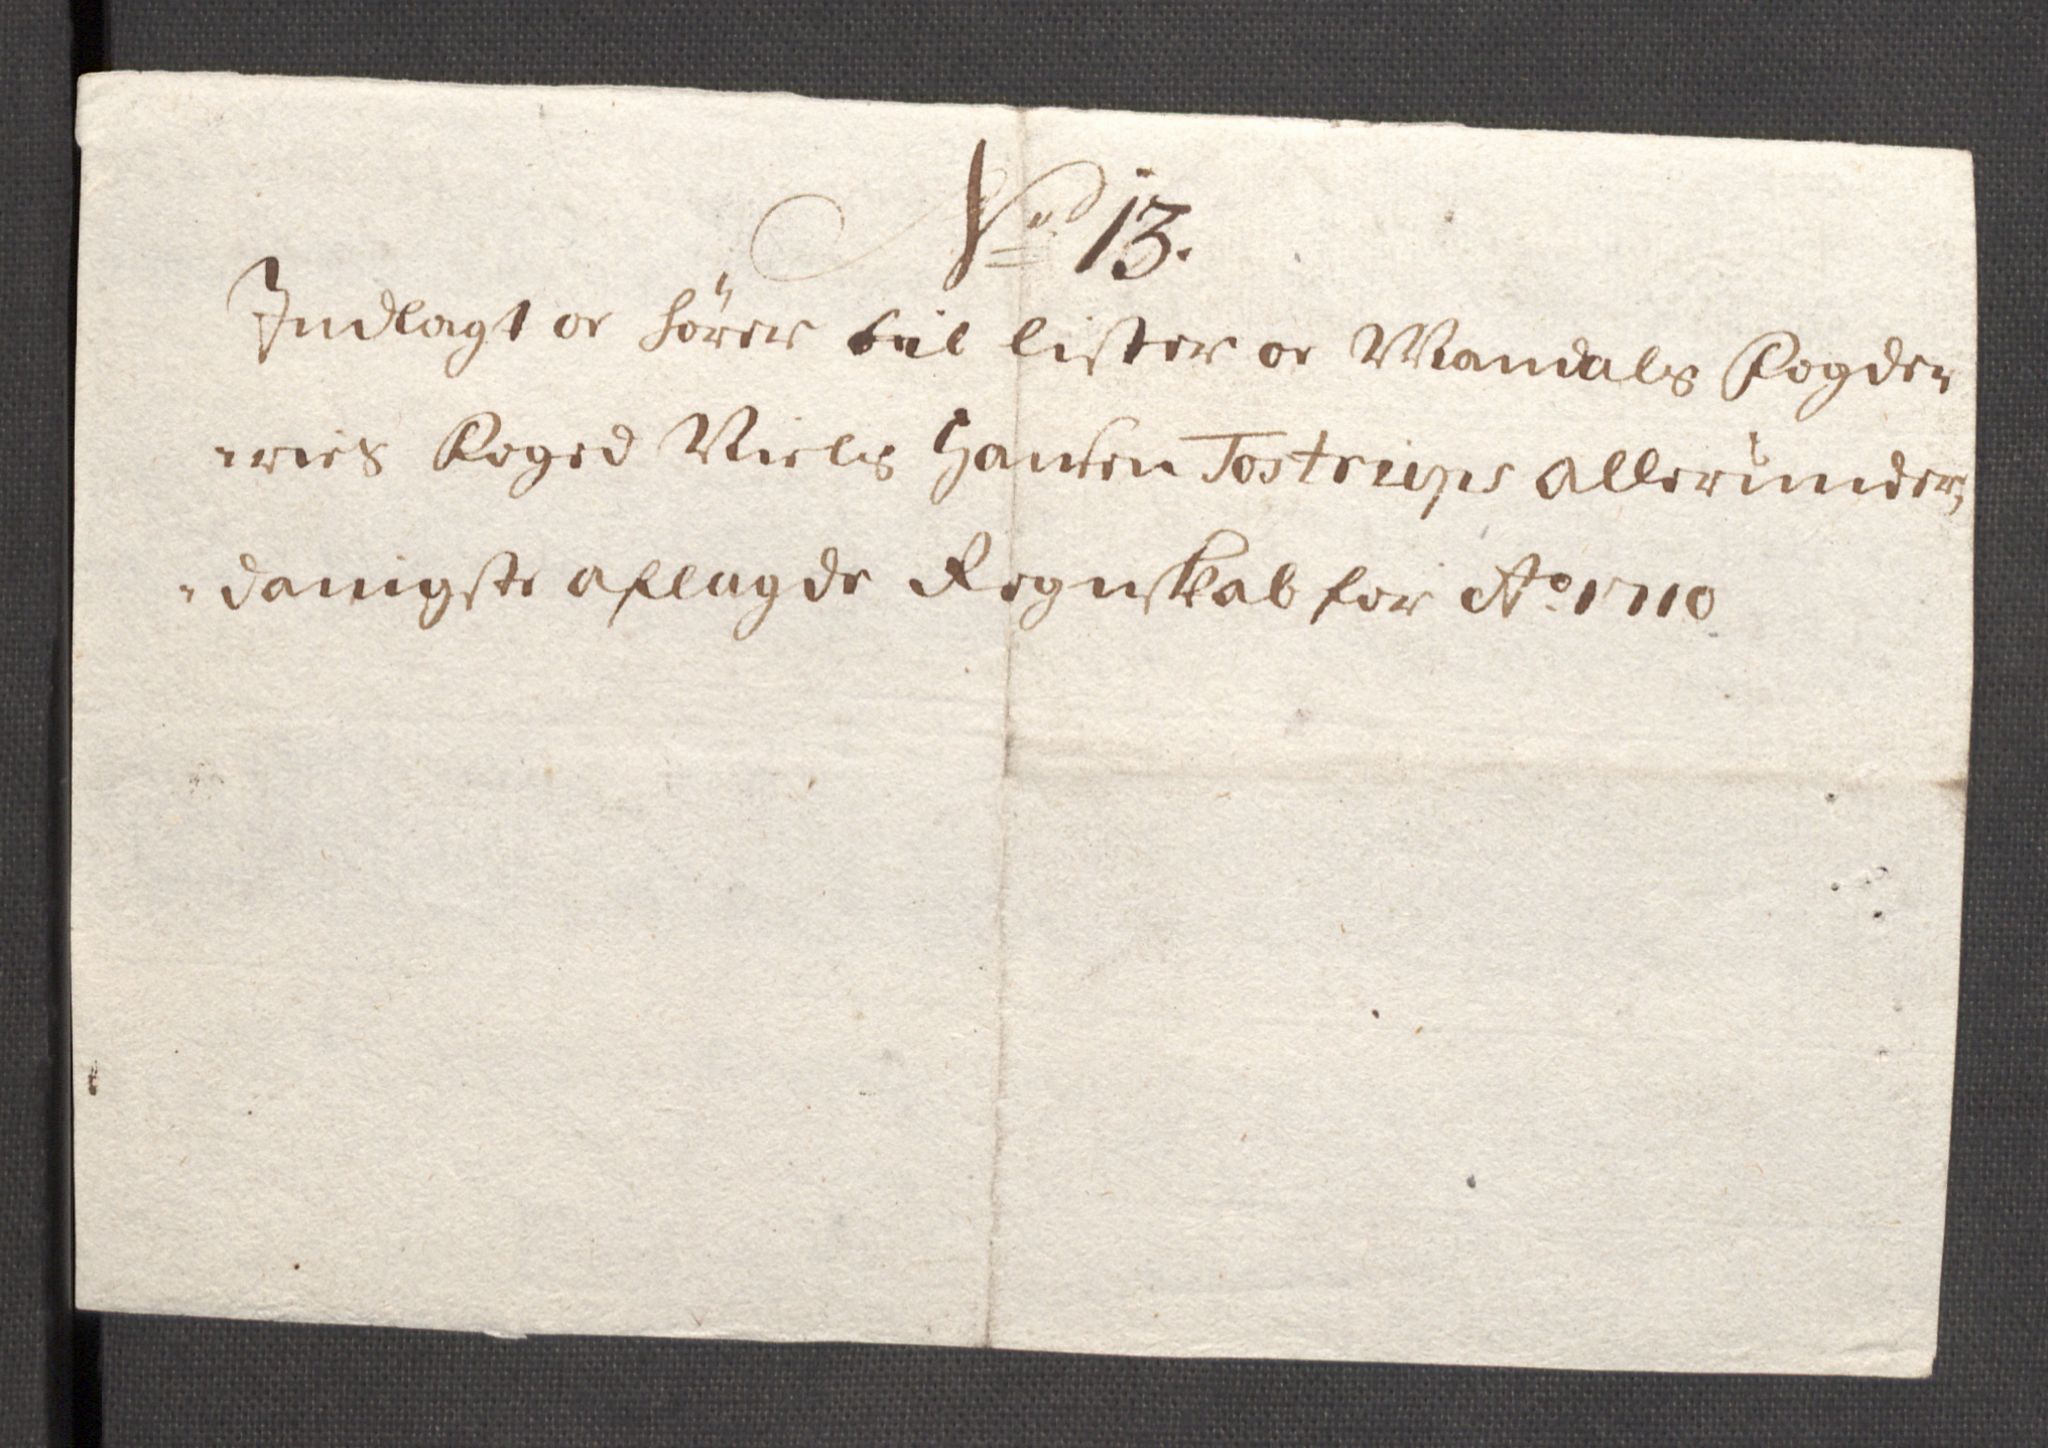 No 13.
Indlagt oc hörer till Lister oc Mandals Fogde-
-ries Foged Niels Hansen Tostrups allerunder,
-danigste aflagde Regnskab for Ao. 1710